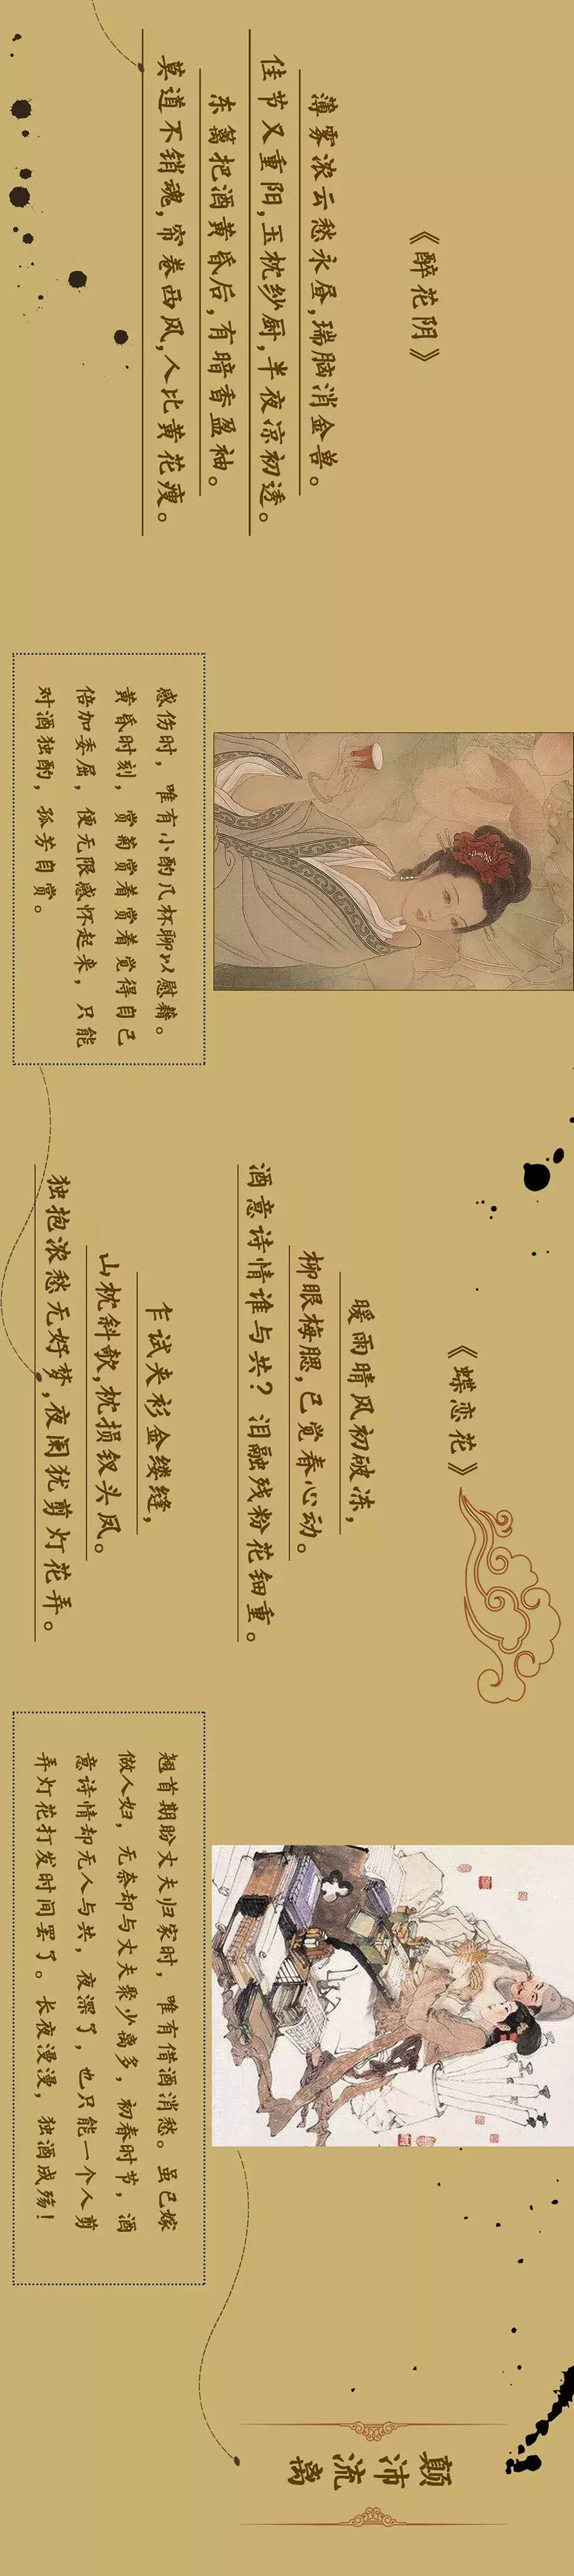 《醉花阴》
薄雾浓云愁永昼,瑞脑消金兽。
佳节又重阳,玉枕纱厨,半夜凉初透。
东篱把酒黄昏后,有暗香盈袖。
莫道不销魂,帘卷西风,人比黄花瘦。
感伤时，唯有小酌几杯聊以慰藉。
黄昏时刻，赏菊赏着赏着觉得自己
倍加委屈，便无限感怀起来，只能
对酒独酌，孤芳自赏。
《蝶恋花》
暖雨晴风初破冻，
柳眼梅腮,已觉春心动。
酒意诗情谁与共？泪融残粉花钿重。
乍试夹衫金缕缝，
山枕斜欹,枕损钗头凤。
独抱浓愁无好梦,夜阑犹剪灯花弄。
翘首期盼丈夫归家时，唯有借酒消愁。虽已嫁
做人妇，无奈却与丈夫聚少离多，初春时节，酒
意诗情却无人与共，夜深了，也只能一个人剪
弄灯花打发时间罢了。长夜漫漫，独酒成殇！
颠
沛
流
离